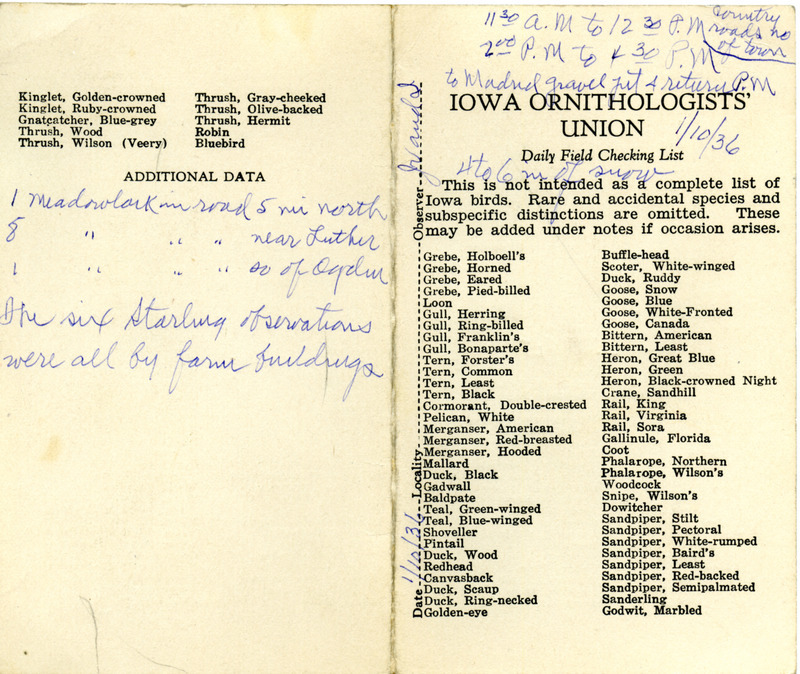 Kinglet, Golden-crowned
Kinglet, Ruby-crowned
Gnatcatcher, Blue-grey
Thrush, Wood
Thrush, Wilson (Veery)
Thrush, Gray-cheeked
Thrush, Olive-backed
Thrush, Hermit
Robin
Bluebird
ADDITIONAL DATA
1 Meadowlark in road 5 mi north
8 " " " near Luther
1 " " " so of Ogden
The six Starling observations
were all by farm buildings
11 30 A.M to 12 30 P.M
country
roads no
of town
2 00 P.M to 4 30 P.M
to Madrid gravel pit & return P.M
IOWA ORNITHOLOGISTS'
UNION
1/10/36
Daily Field Checking List
4 to 6 in of snow
This is not intended as a complete list of
Iowa birds. Rare and accidental species and
subspecific distinctions are omitted. These
may be added under notes if occasion arises.
Date 1/10/36 Locality Observer
Grebe, Holboell's
Grebe, Horned
Grebe, Eared
Grebe, Pied-billed
Loon
Gull, Herring
Gull, Ring-billed
Gull, Franklin's
Gull, Bonaparte's
Tern, Forster's
Tern, Common
Tern, Least
Tern, Black
Cormorant, Double-crested
Pelican, White
Merganser, American
Merganser, Red-breasted
Merganser, Hooded
Mallard
Duck, Black
Gadwall
Baldpate
Teal, Green-winged
Teal, Blue-winged
Shoveller
Pintail
Duck, Wood
Redhead
Canvasback
Duck, Scaup
Duck, Ring-necked
Golden-eye
Buffle-head
Scoter, White-winged
Duck, Ruddy
Goose, Snow
Goose, Blue
Goose, White-Fronted
Goose, Canada
Bittern, American
Bittern, Least
Heron, Great Blue
Heron, Green
Heron, Black-crowned Night
Crane, Sandhill
Rail, King
Rail, Virginia
Rail, Sora
Gallinule, Florida
Coot
Phalarope, Northern
Phalarope, Wilson's
Woodcock
Snipe, Wilson's
Dowitcher
Sandpiper, Stilt
Sandpiper, Pectoral
Sandpiper, White-rumped
Sandpiper, Baird's
Sandpiper, Least
Sandpiper, Red-backed
Sandpiper, Semipalmated
Sanderling
Godwit, Marbled